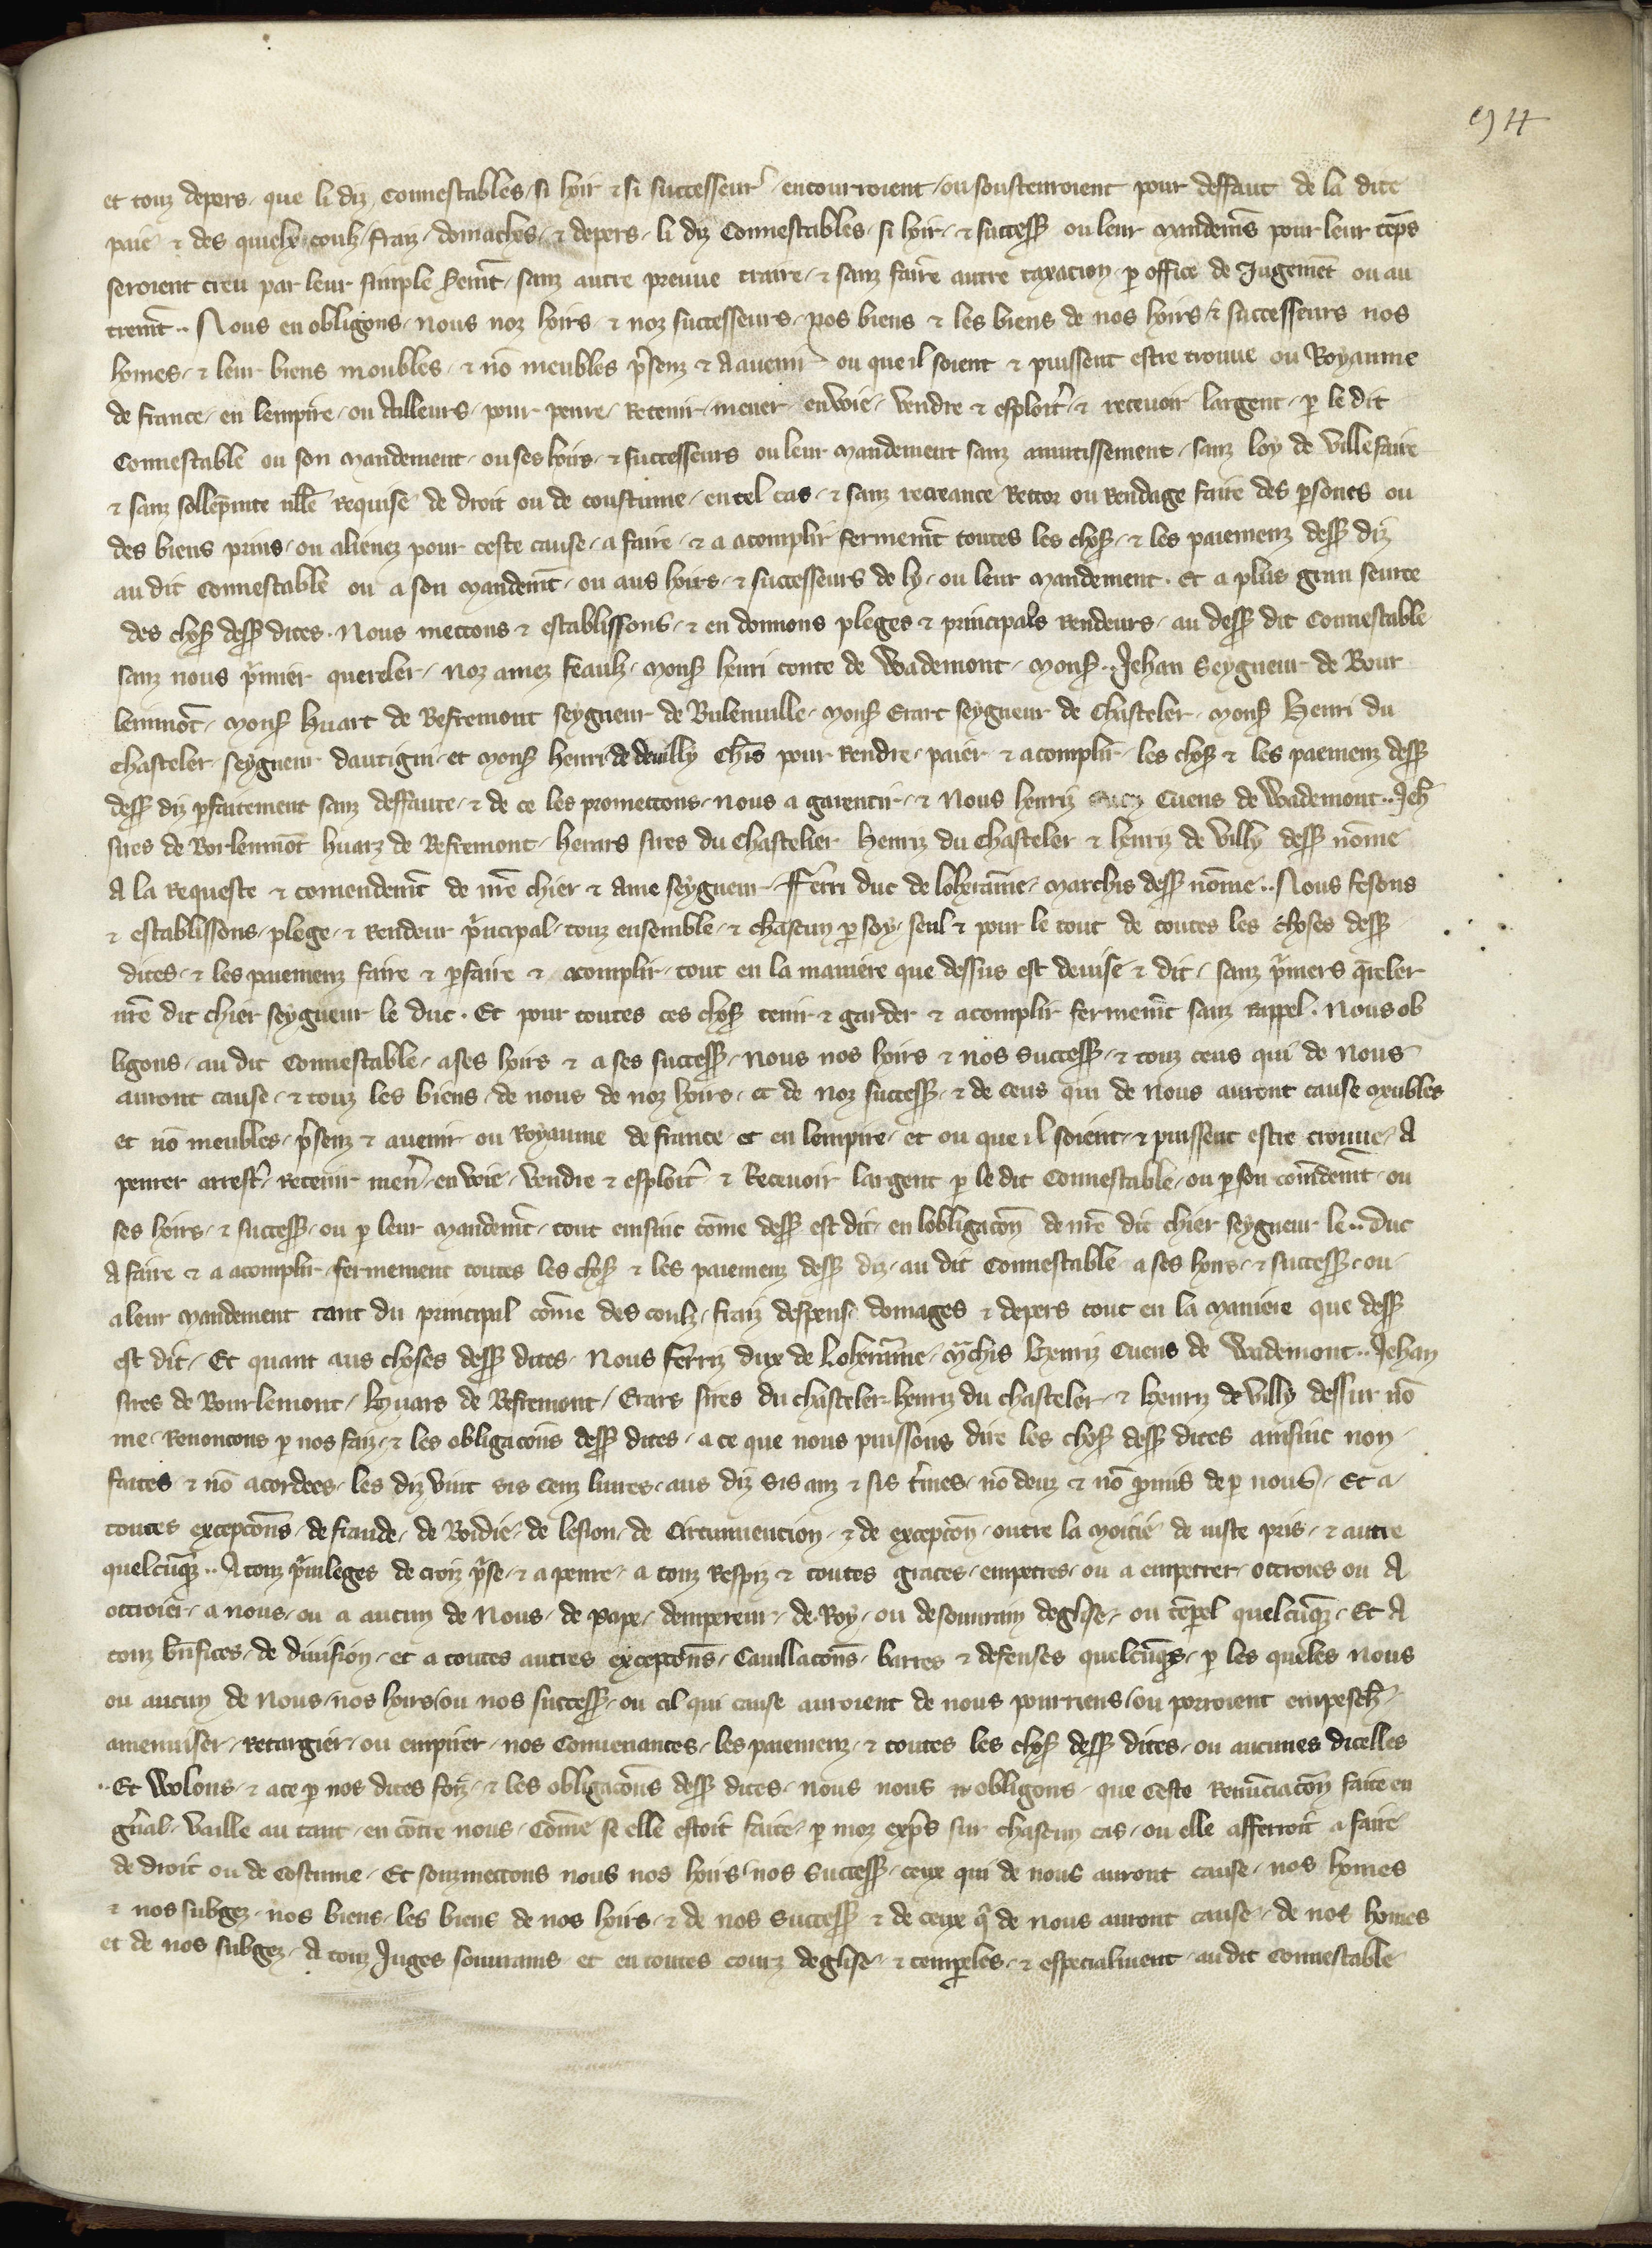 et touz depers, que li diz Connestables, si hoir et si successeur encourroient, ou soustenroient pour deffaut de la dite
paie et des quielx coulz, fraiz, domaches, et depers, li diz Connestables, si hoir, et success ou leur mandemēs pour leur tēps
seroient creu par leur simple serm̄t, sanz autre preuve traire, et sanz faire autre taxacion, p office de Jugemēt ou au
trem̄t .. Nous en obligons, nous noz hoirs, et noz successeurs, nos biens et les biens de nos hoirs, et successeurs nos
homes, et leur biens moubles, et nō meubles p̄senz et a avenir ou que il soient et puissent estre trouve ou Royaume
de france, en lempire, ou Ailleurs, pour penre, Retenir, mener, en voie, vendre et esploit̄, et recevoir largent, p le dit
Connestable ou son mandement, ou ses hoirs, et successeurs ou leur mandement sanz amutissement, sanz loy de ville faire
et sanz sollēpnite nllē Requise de droit ou de coustume, en tel cas, et sanz recreance Rettor ou Rendage faire des psones ou
des biens prins, ou alienez pour ceste cause, a faire, et a acomplir fermem̄t toutes les chos, et les paiemenz dess diz
au dit Connestable ou a son mandem̄t, ou aus hoirs, et successeurs de ly, ou leur mandement. Et a plus gran seurte
des chos dess dites. Nous mettons et establissons, et en donnons pleges et principals Rendeurs, au dess dit Connestable
sanz nous p̄mier quereler, noz amez feaulz, mons henri conte de Wademont, mons .. Jehan Seygneur de Bour
lenmōt, mons Huart de Befremont seygneur de Bulenville, mons Erart seygneur de Chasteler, mons Henri du
chasteler seygneur dautigni, et mons henri de deuilly ch̄rs pour Rendre, paier et acomplir, les chos et les paiemenz dess
dess diz pfaitement sanz deffaute, et de ce les promettons, nous a garentir, et Nous henriz Cuens de Wademont .. Jeh̄
sires de Borlenmōt huarz de Befremont, herars sires du Chastelier Henriz du Chasteler et henriz de villy dess nōme
A la Requeste et comendem̄t de nr̄e chier et ame seygneur, fferri duc de loherainne, marchis dess nōme .. Nous fesons
et establissons, plege, et Rendeur p̄ncipal, touz ensemble, et chascun p soy, seul et pour le tout de toutes les choses dess
dites, et les paiemenz faire et pfaire et acomplir, tout en la maniere que dessus est devise et dit, sanz p̄miers q̄reler
nr̄e dit chier seygneur le duc. Et pour toutes ces chos tenir et garder et acomplir fermem̄t sanz rappel. Nous ob
ligons, au dit Connestable, a ses hoirs et a ses success, nous nos hoirs et nos success, et touz ceus qui de nous
auront cause, et touz les biens, de nous de noz hoirs, et de noz success, et de ceus qui de nous auront cause meubles
et nō meubles, p̄senz et avenir ou Royaume de france et en lempire, et ou que il soient, et puissent estre trouve, A
penrer arrest̄, retenir men̄, en voie, vendre et esploit̄ et Recevoir largent p le dit Connestable, ou p son com̄dem̄t, ou
ses hoirs, et success, ou p leur mandem̄t, tout einsinc cōme dess est dit, en lobligacōn de nr̄e dit chier seygneur le .. duc
A faire et a acomplir, fermement toutes les chos et les paiemenz dess diz, au dit Connestable a ses hoirs, et success, ou
a leur mandement tant du principal cōme des coulz, fraiz despens, domages et depers tout en la maniere que dess
est dit, Et quant aus choses dess dites, Nous ferriz dux de Loherainne, m̄chis Henriz Cuens de Wademont .. Jehan
sires de Bourlemont, Huars de Befremont, Erars sires du chasteler, henriz du chasteler, et Henriz de villy dessur nō
me, Renoncons p nos faiz, et les obligacōns dess dites, a ce que nous puissons dire les chos dess dites ainsinc non
faites et nō acordees, les diz vint sis cenz livres, aus diz sis anz et sis t̄mes, nō deuz et nō p̄mis de p nous, Et a
toutes exceptōns, de fraude, de Boidie, de lesion, de Circunvencion, et de exceptōn, outre la moitie de juste pris, et autre
quelcūq̄z .. A touz p̄vileges de croiz p̄se, et a penre, a touz Respiz et toutes graces, empetrees, ou a empetrer, ottroies ou A
ottroier, a nous, ou a aucun de Nous, de Pape, dempereur, de Roy, ou de souvrain deglise, ou tēpel quelcūq̄z, Et A
touz bn̄fices, de division, et a toutes autres exceptōns, Cauillacōns, barres et defenses quelcūq̄s, p les queles nous
ou aucun de Nous, nos hoirs, ou nos success, ou cil qui cause auroient de nous pourriens, ou porroient empesch̄
amenuiser, Retargier, ou empirer, nos Convenances, les paiemenz, et toutes les chos dess dites, ou aucunes dicelles
.. Et Wolons, et a ce p nos dites foiz, et les obligacōns dess dites, nous nous obligons, que ceste Renūciacōn faite en
gn̄al, vaille au tant, en cōtre nous, Cōme se elle estoit faite, p moz exp̄s sur chascun cas, ou elle afferroit a faire
de droit ou de Costume, Et souzmettons nous nos hoirs, nos success, ceux qui de nous auront cause, nos homes
et nos subgez, nos biens, les biens de nos hoirs, et de nos success et de ceux q̄ de nous auront cause, de nos homes
et de nos subgez, A touz Juges souvrains et en toutes courz deglise, et temp̄les, et especialment, au dit Connestable